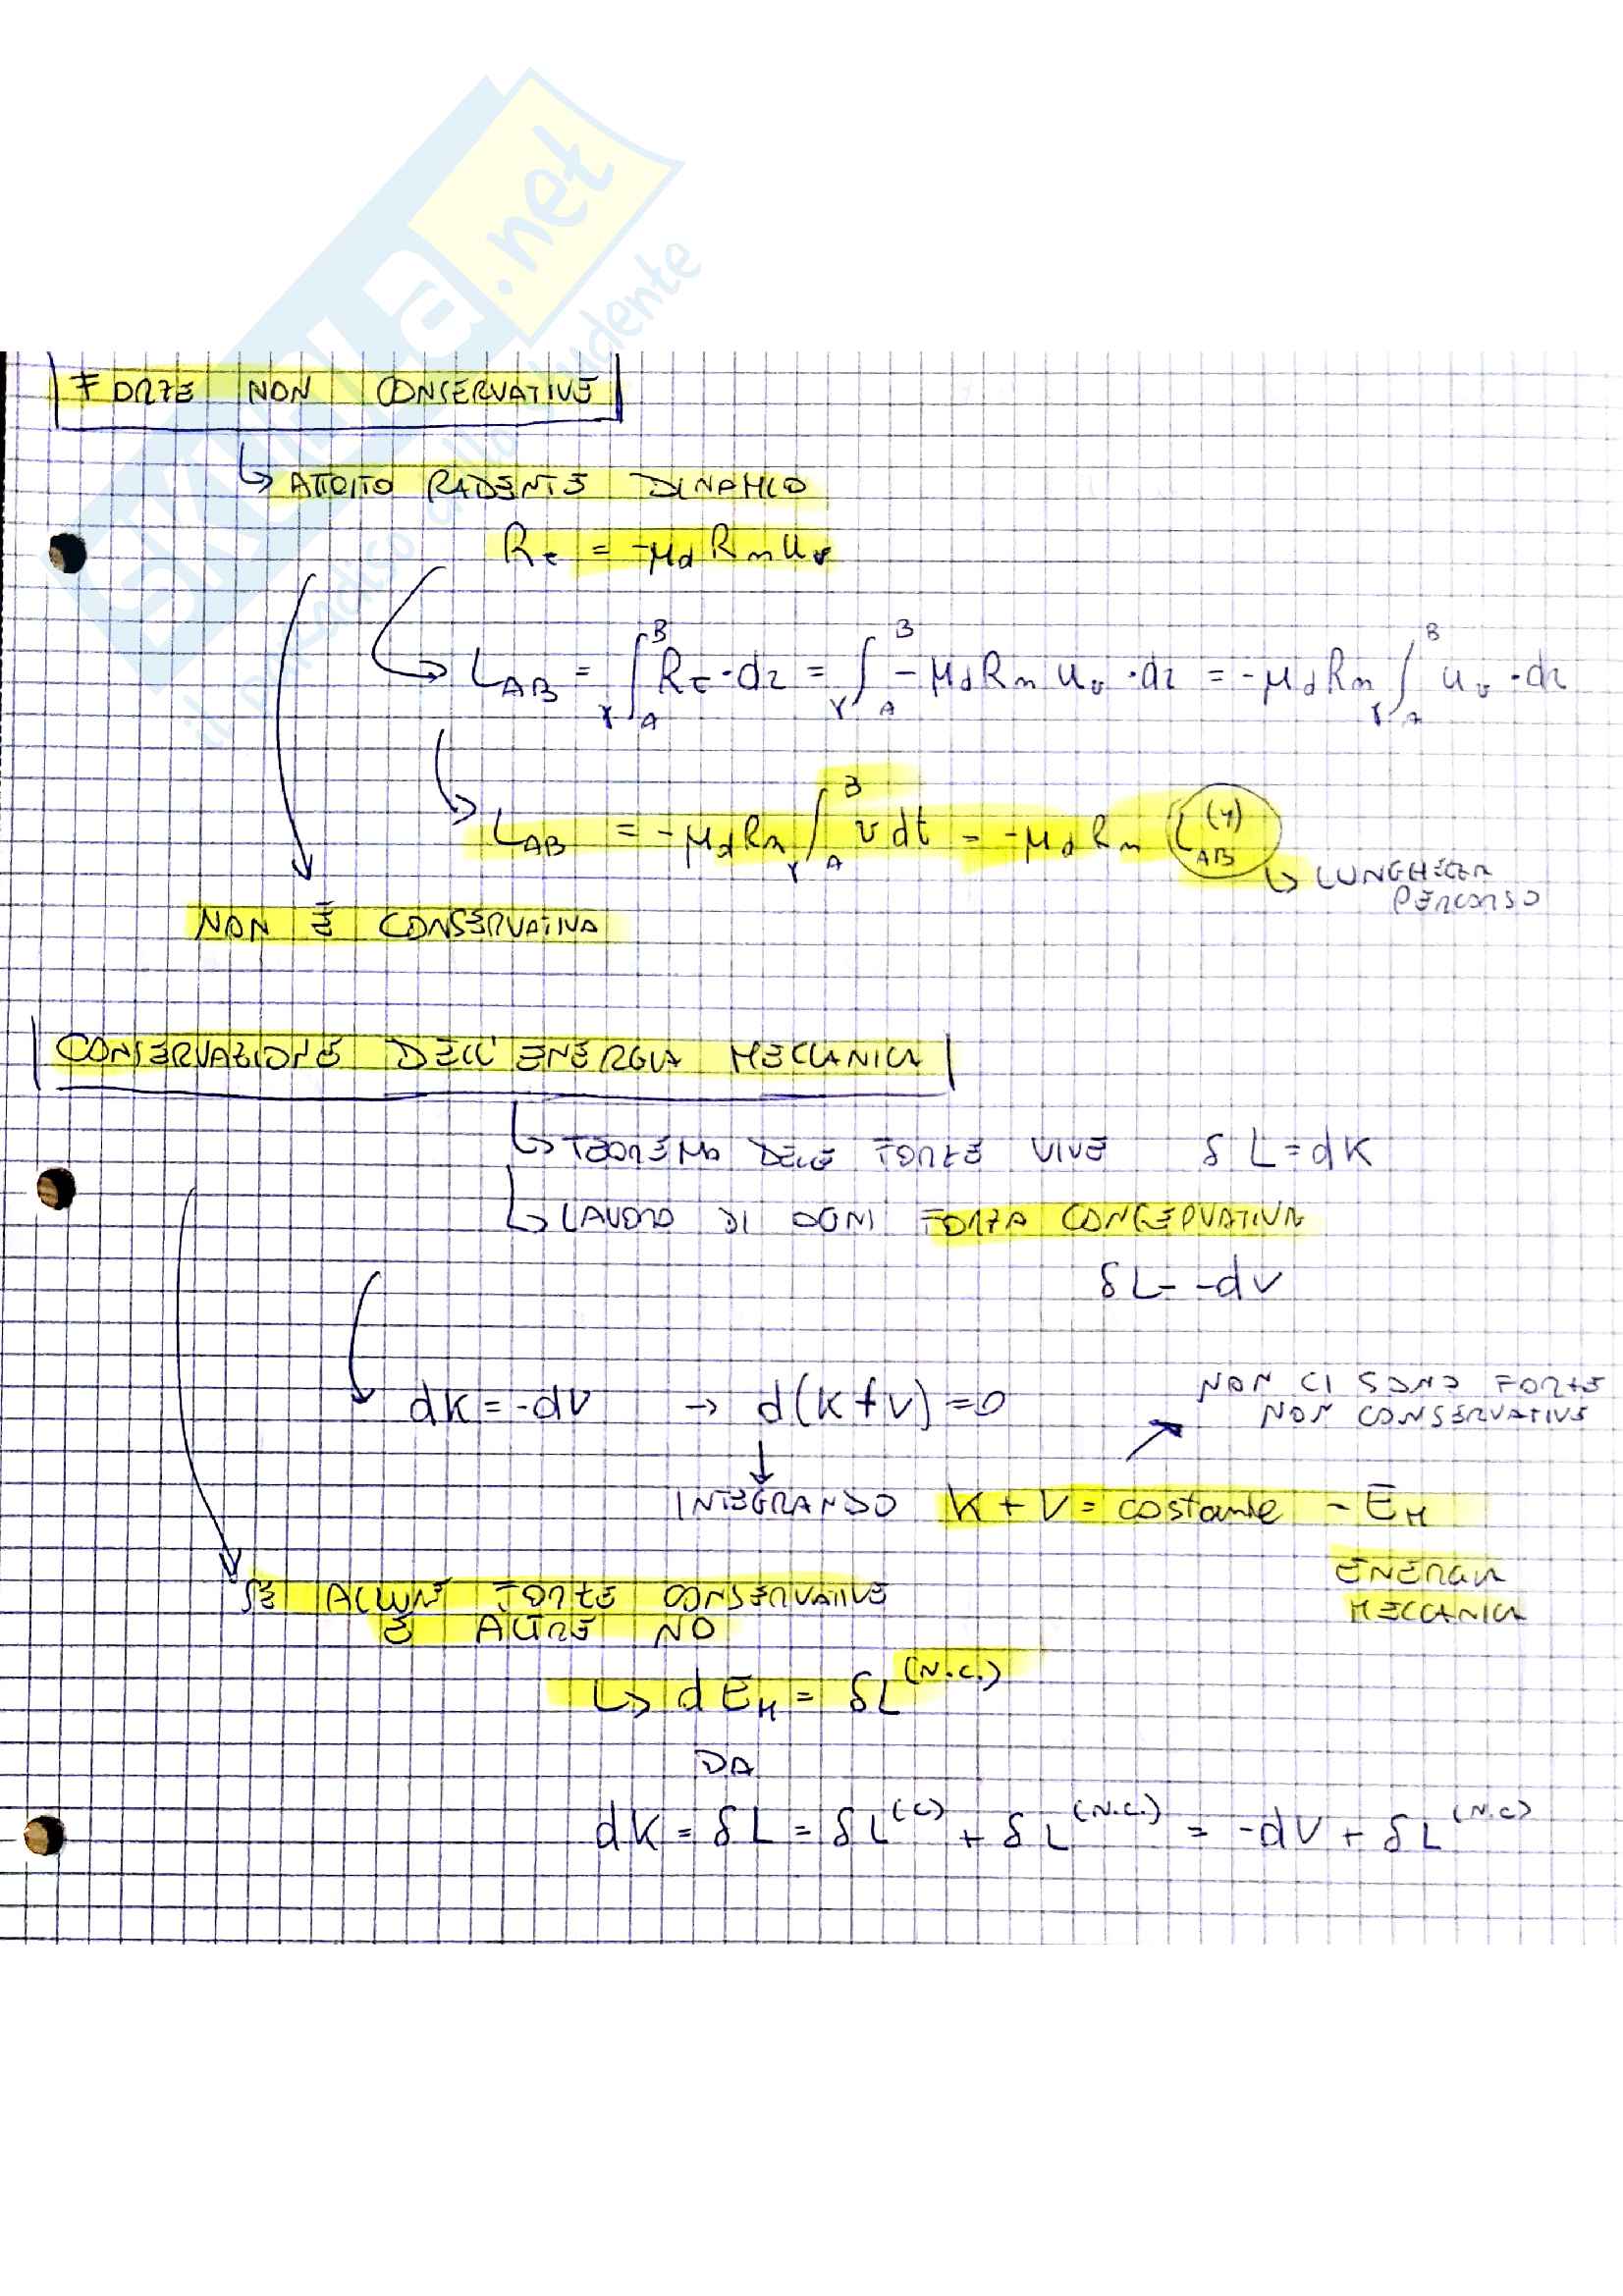 SKUOLA.net
il paradiso dello studente
FORZE NON CONSERVATIVE
↳ ATTRITO RADENTE DINAMICO
R_t = -μ_d R_n u_v
L_AB = ∫_γ A^B R_t · dr = ∫_γ A^B -μ_d R_n u_v · dr = -μ_d R_n ∫_γ A^B u_v · dr
L_AB = -μ_d R_n ∫_γ A^B v dt = -μ_d R_n L_AB^(γ)
↳ LUNGHEZZA
PERCORSO
NON È CONSERVATIVA
CONSERVAZIONE DELL'ENERGIA MECCANICA
↳ TEOREMA DELLE FORZE VIVE δL = dK
↳ LAVORO DI OGNI FORZA CONSERVATIVA
δL = -dV
NON CI SONO FORZE
NON CONSERVATIVE
dK = -dV → d(K+V) = 0
INTEGRANDO K + V = costante = E_M
ENERGIA
MECCANICA
SE ALCUNE FORZE CONSERVATIVE
E ALTRE NO
↳ dE_M = δL^(N.C.)
DA
dK = δL = δL^(C) + δL^(N.C.) = -dV + δL^(N.C)